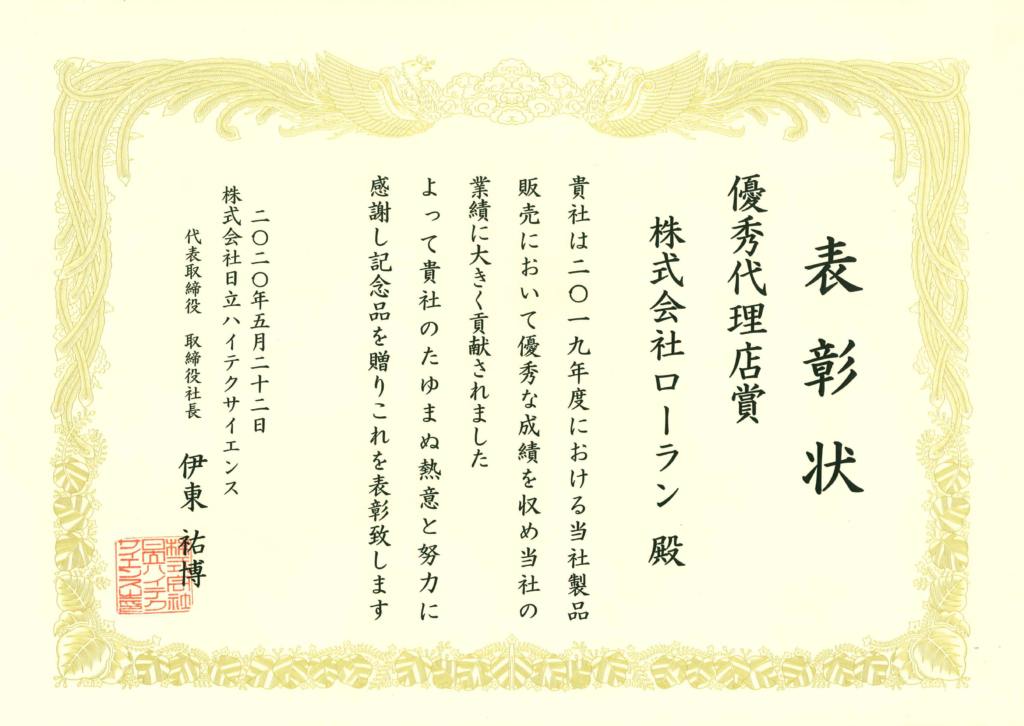 表彰状
優秀代理店賞
株式会社ローラン 殿
貴社は二〇一九年度における当社製品
販売において優秀な成績を収め当社の
業績に大きく貢献されました
よって貴社のたゆまぬ熱意と努力に
感謝し記念品を贈りこれを表彰致します
二〇二〇年五月二十二日
株式会社日立ハイテクサイエンス
代表取締役 取締役社長 伊東 祐博